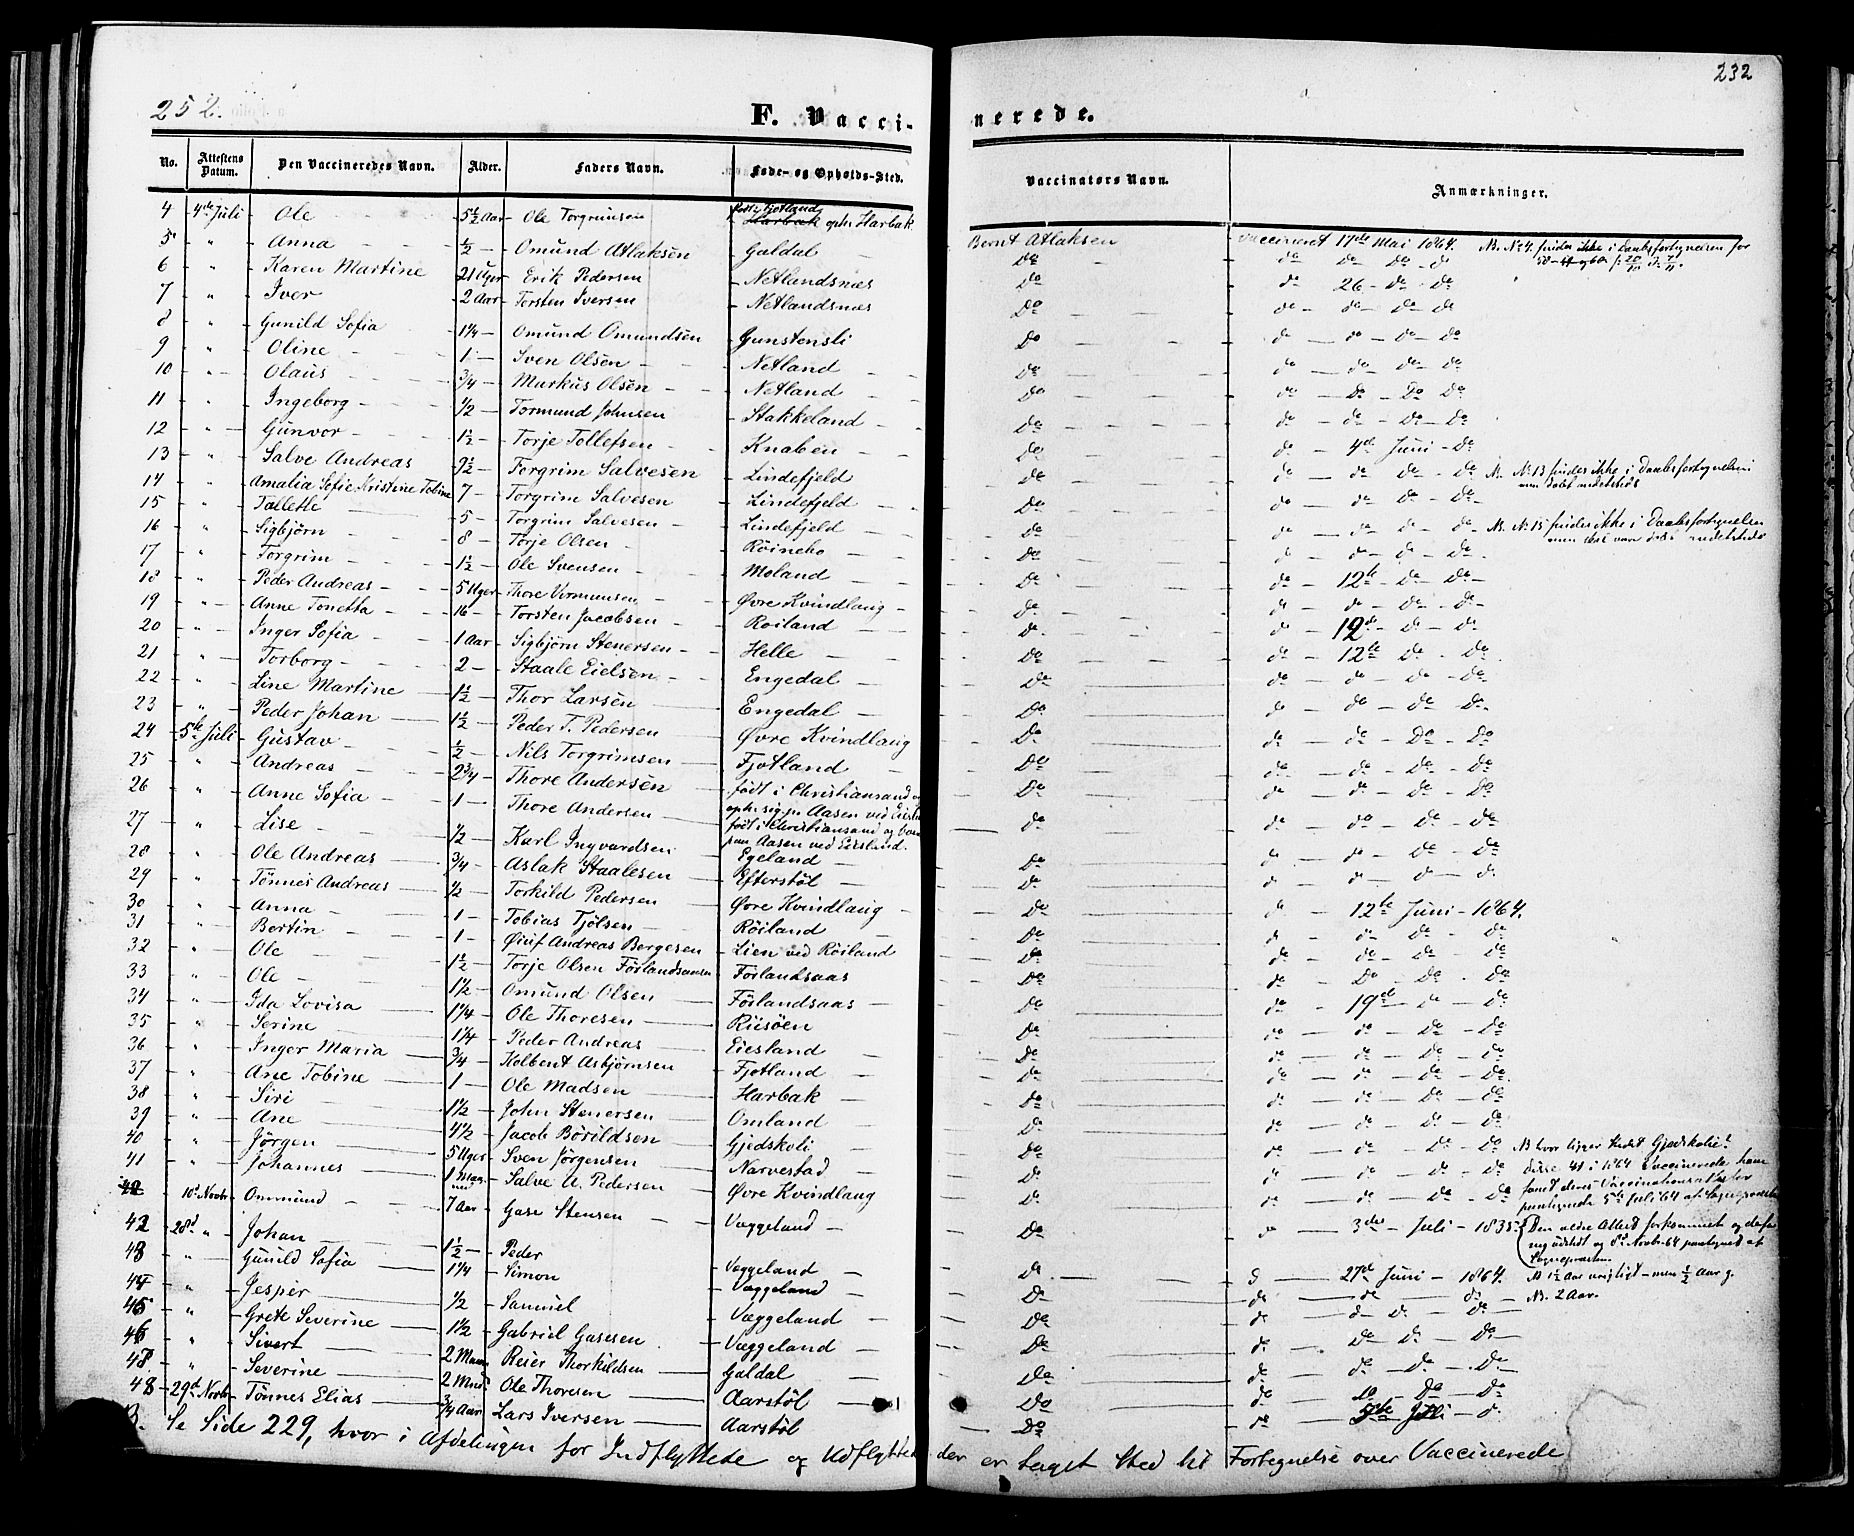 252.
232
F. Vacci-
nerede.
No. Attestens Datum. Den Vaccineredes Navn. Alder. Faders Navn. Føde- og Opholds-Sted. Vaccinators Navn. Anmærkninger.
4 4de Juli Ole 5½ Aar Ole Torgrimsen Fjotland Harbak oph. Harbak Bernt Atlaksen vaccineret 17de Mai 1864. NB. No 4. findes ikke i Daabsfortegnelsen for
5 " Anna ½ Omund Atlaksen Galdal do do do do d
6 " Karen Martine 21 Uger Erik Pedersen Netlandsnæs Do do 26 do do
7 " Iver 2 Aar Torsten Iversen Netlandsnæs Do do do do do
8 " Gunild Sofia 1¼ Omund Omundsen Gunstensli Do do do do do
9 " Oline 1 Sven Olsen Netland Do do do do do
10 " Olaus ¾ Markus Olsen Netland Do do Do Do do
11 " Ingeborg ½ Tormund Johnsen Stakkeland Do do do Do Do
12 " Gunvor 1½ Torje Tollefsen Knaben Do do 4de Juni do
13 " Salve Andreas 9½ Torgrim Salvesen Lindefjeld do do do do do NB. No 13 findes ikke i Daabsfortegnelsen
14 " Amalia Sofie Kristine Tobine 7 Torgrim Salvesen Lindefjeld Do do do do do
15 " Tallette 5 Torgrim Salvesen Lindefjeld Do do do do do NB. No 15 findes ikke i Daabsfortegnelsen
16 " Sigbjörn 8 Torje Olsen Do do do do do
17 " Torgrim 1½ Ole Svensen Moland Do do 12te do do
18 " Peder Andreas 5 Uger Thore Øvre Kvindlaug Do do do do do
19 " Anne Tonetta 16 Torsten Jacobsen Roiland Do do 12te do do
20 " Inger Sofia 1 Aar Sigbjørn Stenersen Helle Do do 12te do do
21 " Torborg 2 Staale Eielsen Engedal Do do do do do
22 " Line Martine 1½ Thor Larsen Engedal Do do do do do
23 " Peder Johan 1½ Peder T. Pedersen Øvre Kvindlaug Do do do Do Do
24 5te Juli Gustav ½ Nils Torgrimsen Fjotland Do do do Do Do
25 " Andreas 2¾ Thore Andersen født i Christiansand Do do do Do Do
26 " Anne Sofia 1 Thore Andersen født i Christiansand og paa Aasen ved Eiesland. do do do do do
27 " Lise ½ Karl Ingvardsen Egeland Do do do do do
28 " Ole Andreas ¾ Aslak Staalesen Efterstøl Do d d d d
29 " Tönnes Andreas ½ Torkild Pedersen Øvre Kvindlaug Do do 12te Juni 1864.
30 " Anna 1 Tobias Tjölsen Röiland Do do do do do
31 " Bertin 1 Andreas Bergesen Lien ved Röiland Do do do do do
32 " Ole 1½ Torje Olsen Förlandsaas Do do Do Do do
33 " Ole 1½ Omund Olsen Förlandsaas Do do 19de do do
34 " Ida Lovisa 1¼ Ole Thoresen Riisöen Do do do Do Do
35 " Serine 1¼ Peder Andreas Eiesland Do do do Do Do
36 " Inger Maria ¾ Kolbent Asbjørnsen Fjotland Do do do Do Do
37 " Ane Tobine 1 Ole Madsen Harbak Do do do Do Do
38 " Siri 1½ John Stenersen Omland Do do do Do Do
39 " Ane 4½ Jacob Börildsen Gjedskoli Do do do Do Do NB hvor ligger Stedet Gjedskolie?
40 " Jörgen 5 Uger Sven Jørgensen Narvestad D do do do do disse 41 i 1864 Vaccinerede have
41 " Johannes 1 Salve A. Pedersen Øvre Kvindlaug Do do do do Do
42 10de Novbr Ommund 7 Aar Gase Stensen Væggeland Do do 3die Juli 1835
42 28d " Johan 1½ Peder Væggeland D 27de Juni 1864. NB 1½ Aar
43 " Gunild Sofia 1¼ Simon Væggeland Do do do do NB. 2 Aar.
44 " Jesper ½ Samuel Væggeland Do do do do do
45 " Grete Severine 1½ Gabriel Gasesen Væggeland Do do Do Do Do
46 " Sivert 2 Reier Thorkildsen Galdal Do do do Do Do
48. " Severine 2 Ole Thoresen Aarstøl Do do Do Do
48 29d Novbr Tönnes Elias ¾ Aar Lars Iversen Aarstøl Do do Juli
Se Side 229, hvor i Afdelingen for Indflyttede og Udflyttede der er taget Sted til Fortegnelse over Vaccinerede